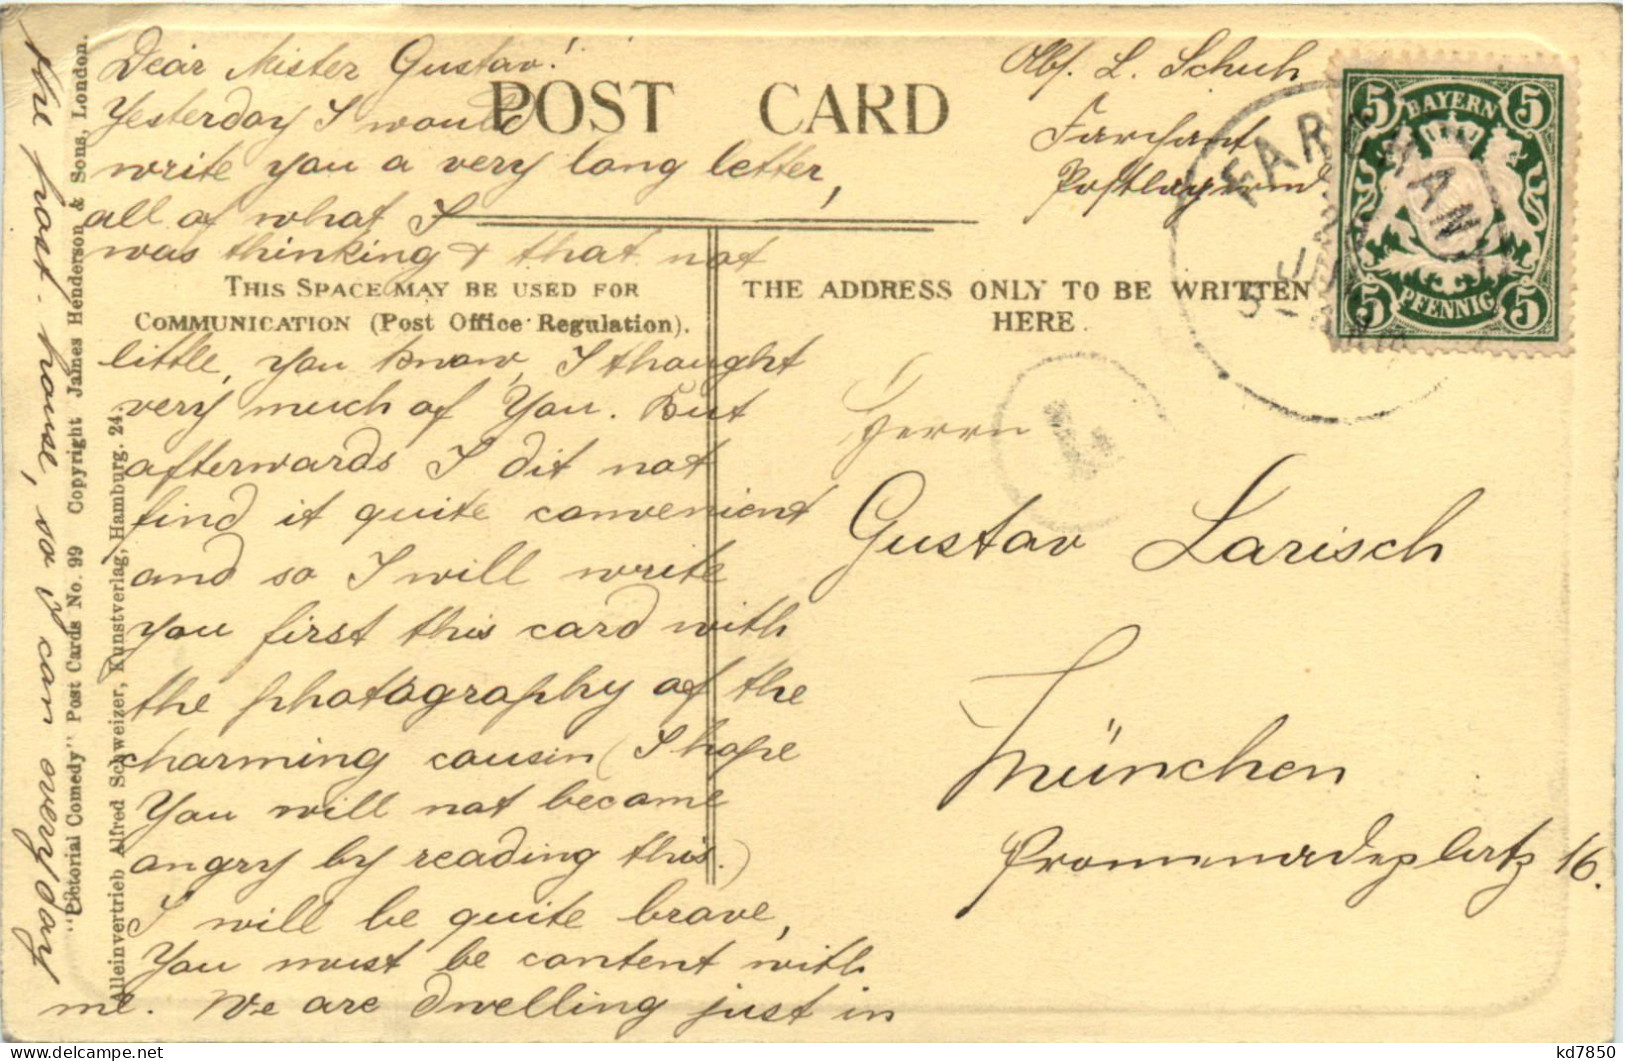 Dear Mister Gustav!
Yesterday I would
write you a very long letter,
all of what I
was thinking & that not
little, you know, I thought
very much of You. But
afterwards I dit not
find it quite convenient
and so I will write
you first this card with
the photography of the
charming cousin (I hope
You will not become
angry by reading this.)
I will be quite brave,
You must be content with
me. We are dwelling just in
the post-house, so I can every day
POST CARD
THIS SPACE MAY BE USED FOR
COMMUNICATION (Post Office Regulation).
THE ADDRESS ONLY TO BE WRITTEN
HERE
"Pictorial Comedy" Post Cards No. 99 Copyright James Henderson & Sons, London.
Alleinvertrieb Alfred Schweizer, Kunstverlag, Hamburg. 24.
Abs. L. Schuh
Farchant
Postlagernd
5 BAYERN 5
5 PFENNIG 5
FARCHANT
JUN
Herrn
Gustav Larisch
München
Promenadeplatz 16.
kd7850